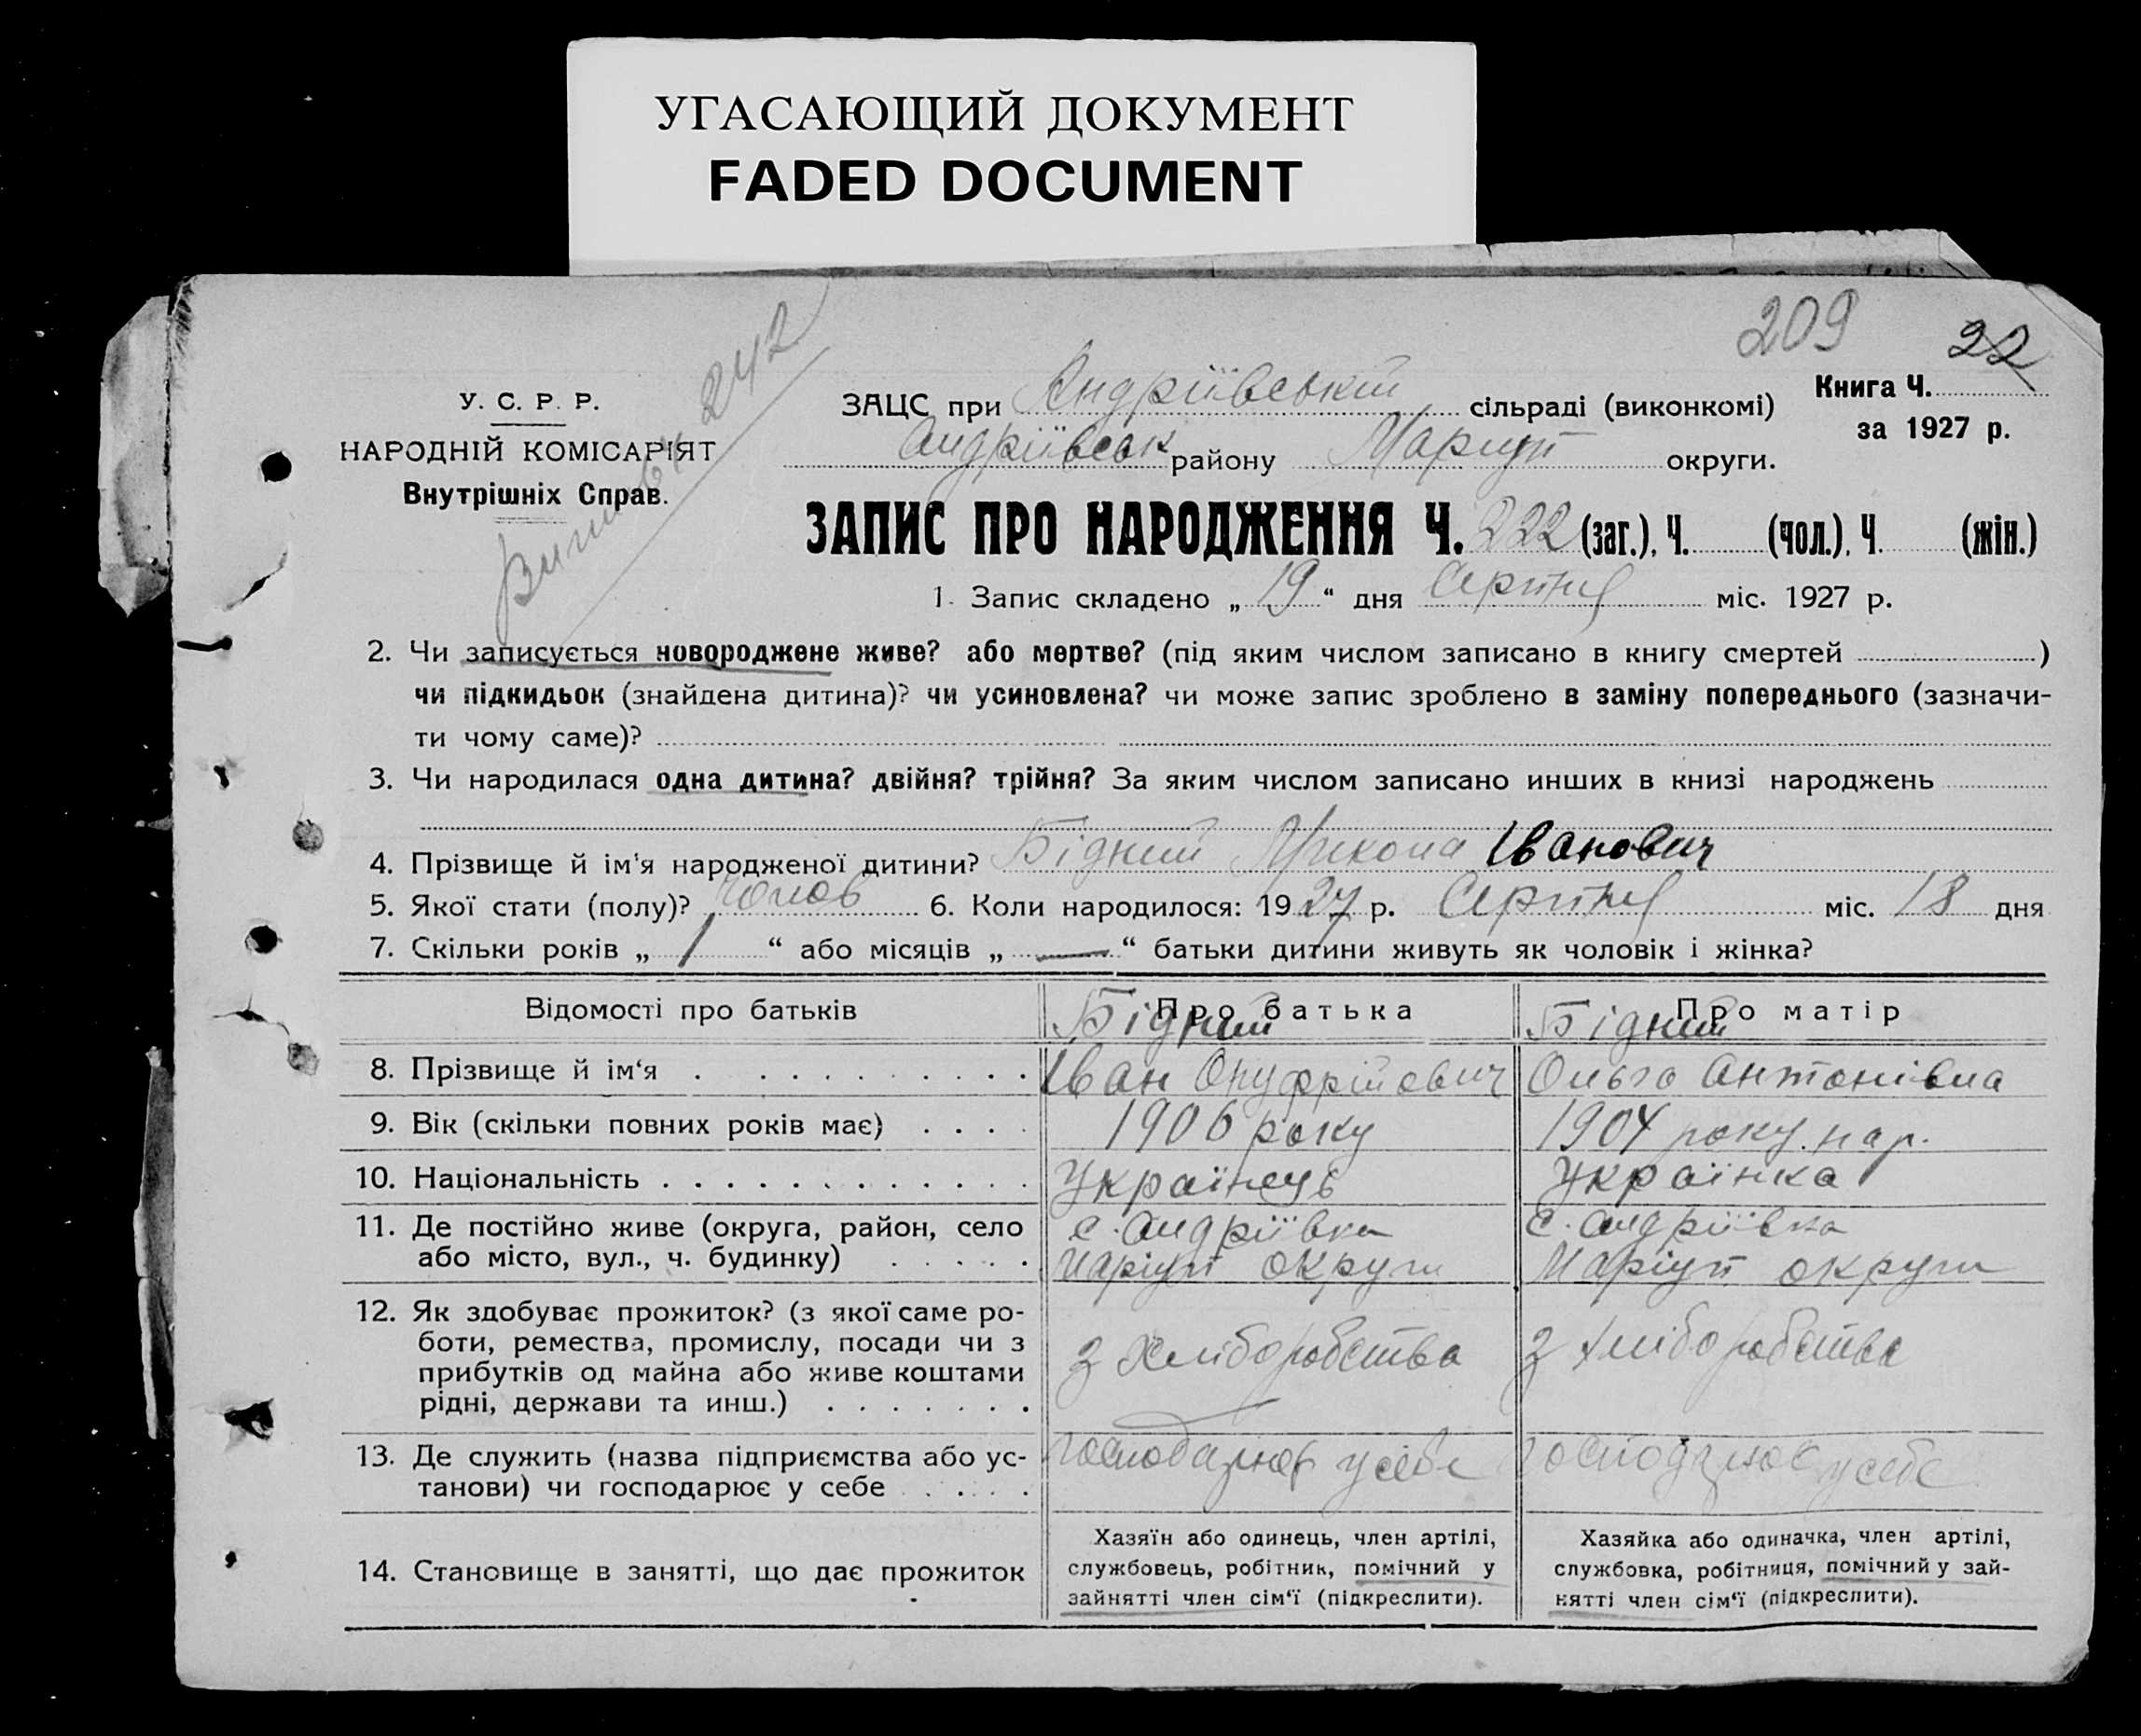 УГАСАЮЩИЙ ДОКУМЕНТ
FADED DOCUMENT
209 22
242
У. С. Р. Р.
НАРОДНІЙ КОМІСАРІЯТ
Внутрішніх Справ.
ЗАЦС при Андріївській сільраді (виконкомі)
Андріївськ району Маріуп округи.
Книга Ч.
за 1927 р.
ЗАПИС ПРО НАРОДЖЕННЯ Ч. 222 (заг.), Ч. (чол.), Ч. (жін.)
1. Запис складено „ 19 “ дня Серпня міс. 1927 р.
2. Чи записується новороджене живе? або мертве? (під яким числом записано в книгу смертей )
чи підкидьок (знайдена дитина)? чи усиновлена? чи може запис зроблено в заміну попереднього (зазначи-
ти чому саме)?
3. Чи народилася одна дитина? двійня? трійня? За яким числом записано инших в книзі народжень
4. Прізвище й ім'я народженої дитини? Бідний Микола Іванович
5. Якої стати (полу)? Чолов 6. Коли народилося: 1927 р. Серпня міс. 18 дня
7. Скільки років „ 1 “ або місяців „ — “ батьки дитини живуть як чоловік і жінка?
Відомості про батьків Про батька Про матір
Бідний Бідний
8. Прізвище й ім‘я Іван Онуфрійович Ольга Антонівна
9. Вік (скільки повних років має) 1906 року 1904 року нар.
10. Національність Українець Українка
11. Де постійно живе (округа, район, село с. Андріївка с. Андріївка
або місто, вул., ч. будинку) Маріуп округи Маріуп округи
12. Як здобуває прожиток? (з якої саме ро-
боти, ремества, промислу, посади чи з
прибутків од майна або живе коштами
рідні, держави та инш.) з хліборобства з хліборобства
13. Де служить (назва підприємства або ус-
танови) чи господарює у себе господарює у себе господарює у себе
14. Становище в занятті, що дає прожиток
Хазяїн або одинець, член артілі,
службовець, робітник, помічний у
зайнятті член сім‘ї (підкреслити).
Хазяйка або одиначка, член артілі,
службовка, робітниця, помічний у зай-
нятті член сім‘ї (підкреслити).